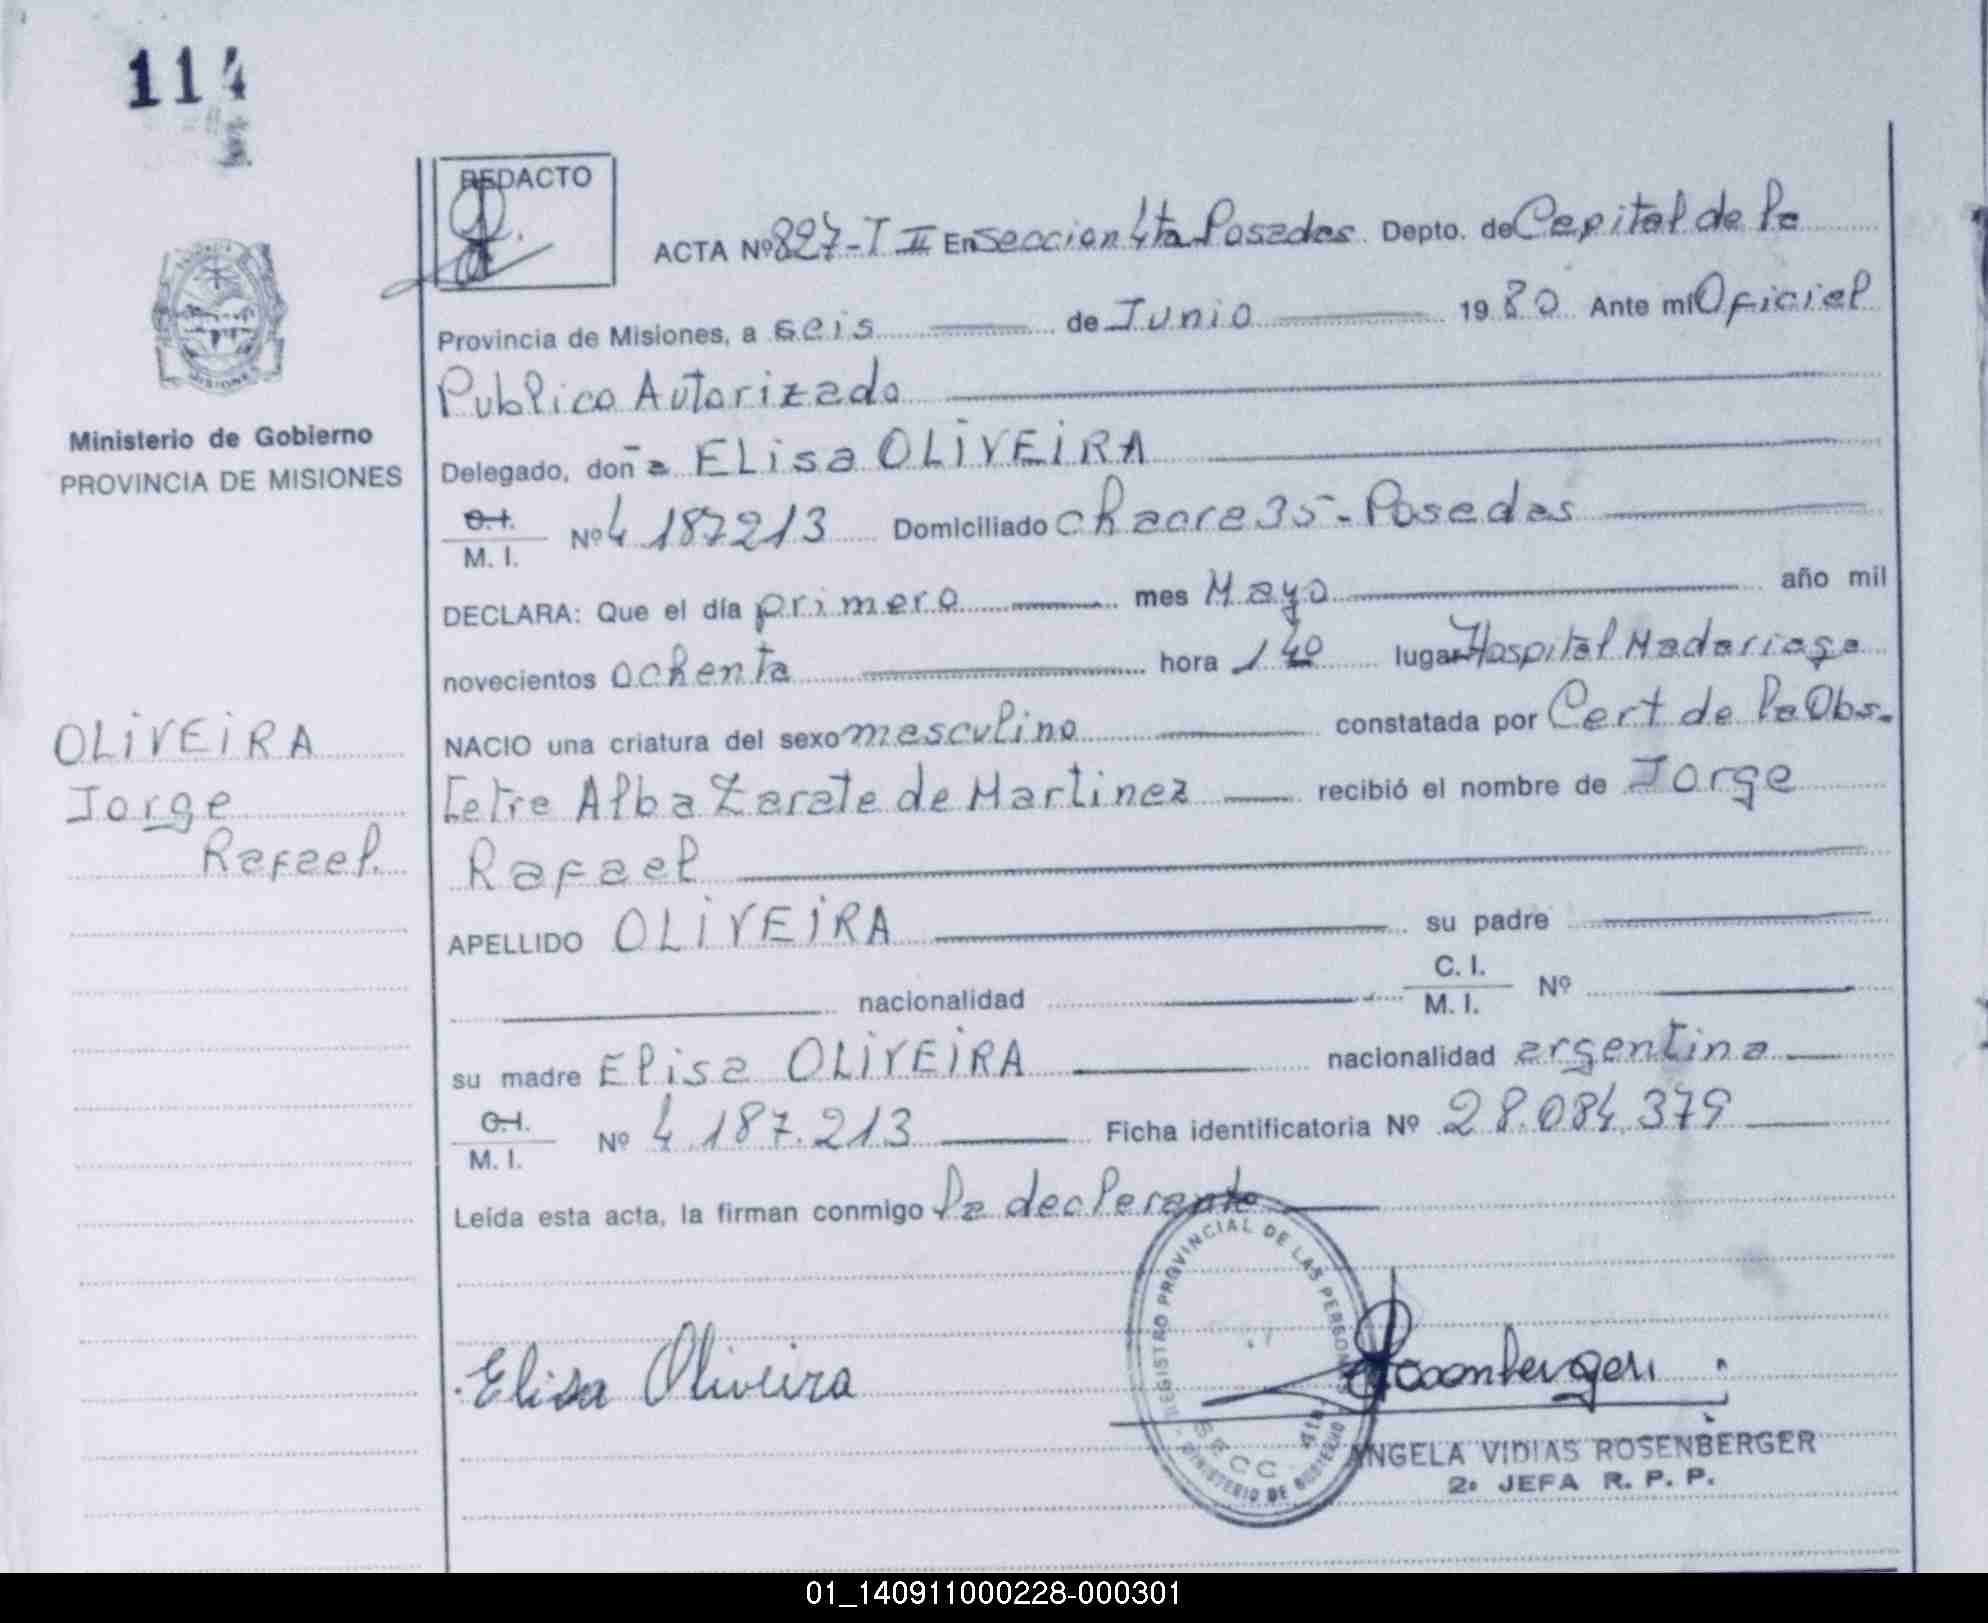 114
REDACTO
ACTA Nº 827-T II En seccion 4ta Posadas Depto. de Capital de la
Provincia de Misiones, a seis de Junio 1980 Ante mí Oficial
Publico Autorizado
Ministerio de Gobierno
PROVINCIA DE MISIONES
Delegado, doña Elisa OLIVEIRA
C.I.
M. I. Nº 4 187213 Domiciliado chacra 35 - Posadas
DECLARA: Que el día primero mes Mayo año mil
novecientos ochenta hora 1 40 lugar Hospital Madariaga
NACIO una criatura del sexo masculino constatada por Cert de la Obs-
tetra Alba Zarate de Martinez recibió el nombre de Jorge
Rafael
OLIVEIRA
Jorge
Rafael.
APELLIDO OLIVEIRA su padre
nacionalidad C. I.
M. I. Nº
su madre Elisa OLIVEIRA nacionalidad argentina
C.I.
M. I. Nº 4 187.213 Ficha identificatoria Nº 28.084.379
Leída esta acta, la firman conmigo la declarante
REGISTRO PROVINCIAL DE LAS PERSONAS
SECC. 4ta
MINISTERIO DE GOBIERNO
Elisa Oliveira
Rosenberger
ANGELA VIDIAS ROSENBERGER
2º JEFA R. P. P.
01_140911000228-000301